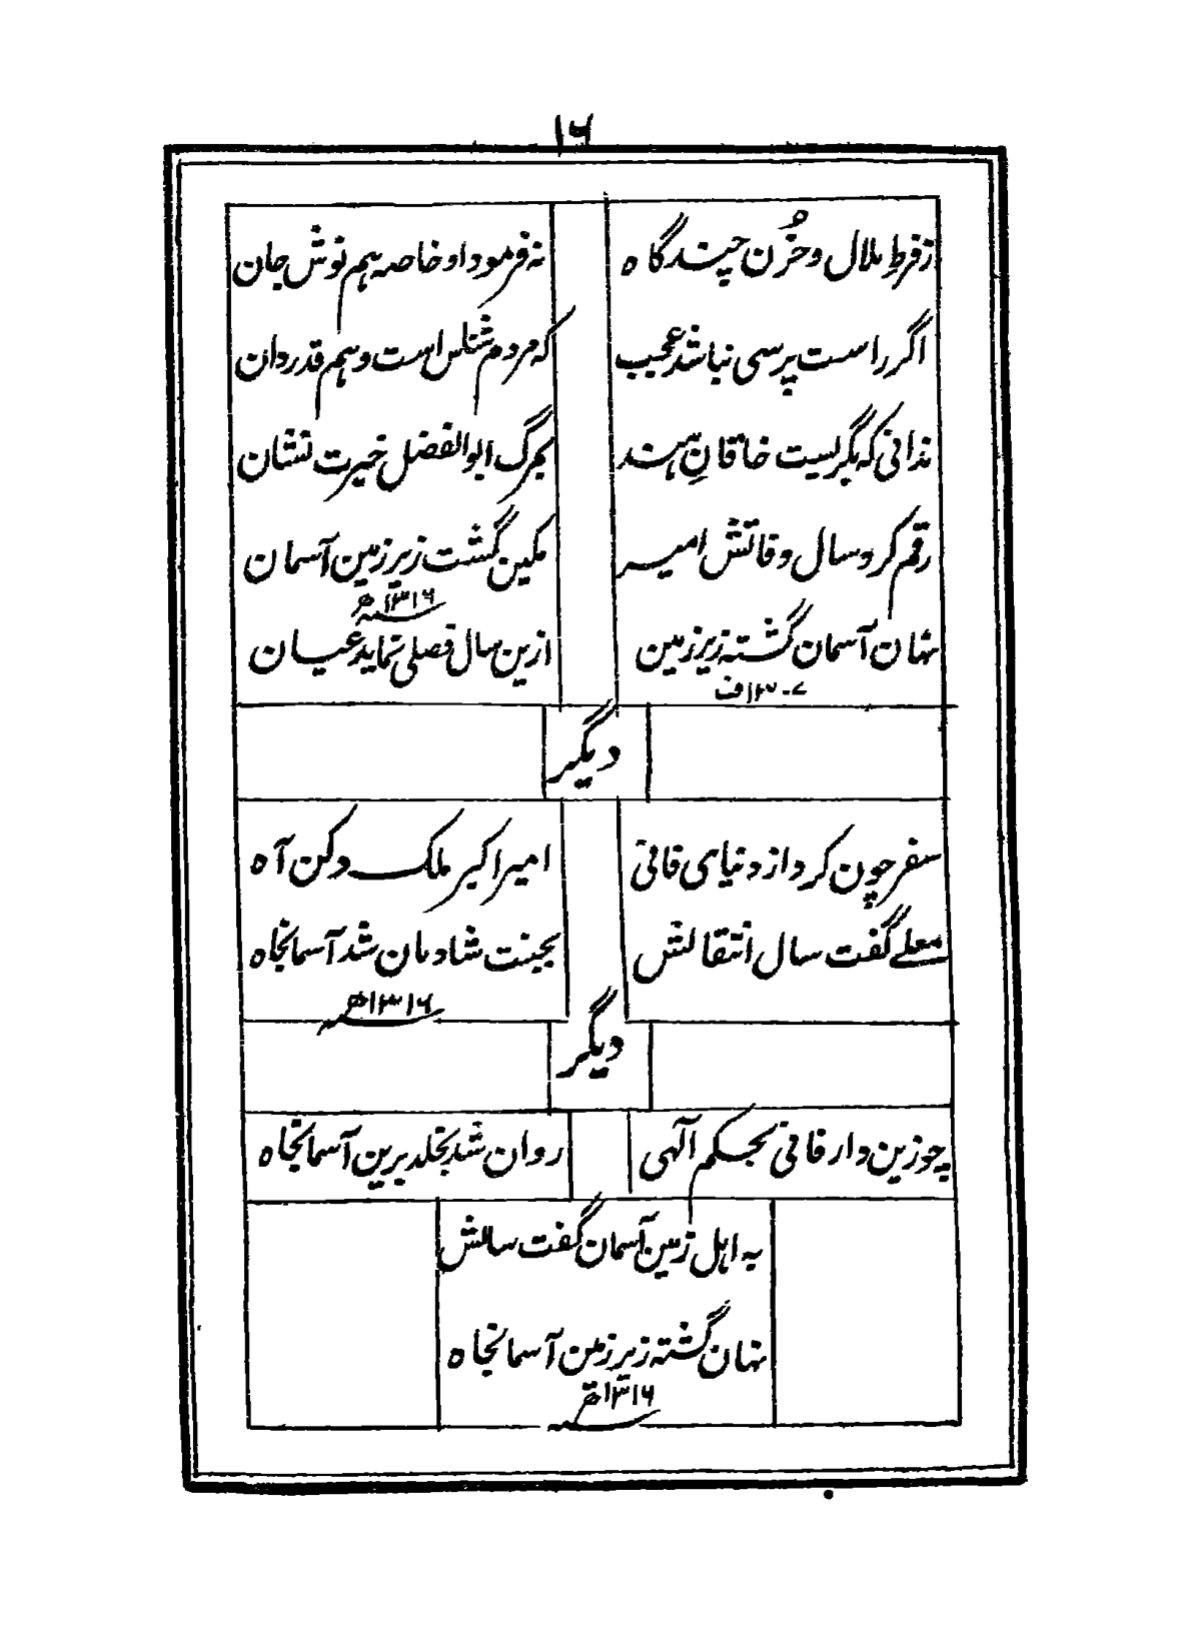 ۱۶
زفرطِ ملال و حُزن چندگاہ
نہ فرمود او خاصہ ہم نوش جان
اگر راست پرسی نباشد عجیب
کہ مردم شناس است و ہم قدردان
ندانی کہ بگریست خاقانِ ہند
بمرگ ابوالفضل خیرت نشان
رقم کرد سال وفاتش امیر
مکین گشت زیر زمین آسمان
۱۳۱۶ھ
نہان آسمان گشتہ زیر زمین
ازین سال فصلی نماید عیان
۱۳۰۷ف
دیگر
سفر چون کرد از دنیای فانی
امیر اکبر ملک دکن آہ
معلے گفت سال انتقالش
بجنت شادمان شد آسمانجاہ
۱۳۱۶ھ
دیگر
چو زین دار فانی بحکم آلہی
روان شد بخلد برین آسمانجاہ
بہ اہل زمین آسمان گفت سالش
نہان گشتہ زیر زمین آسمانجاہ
۱۳۱۶ھ